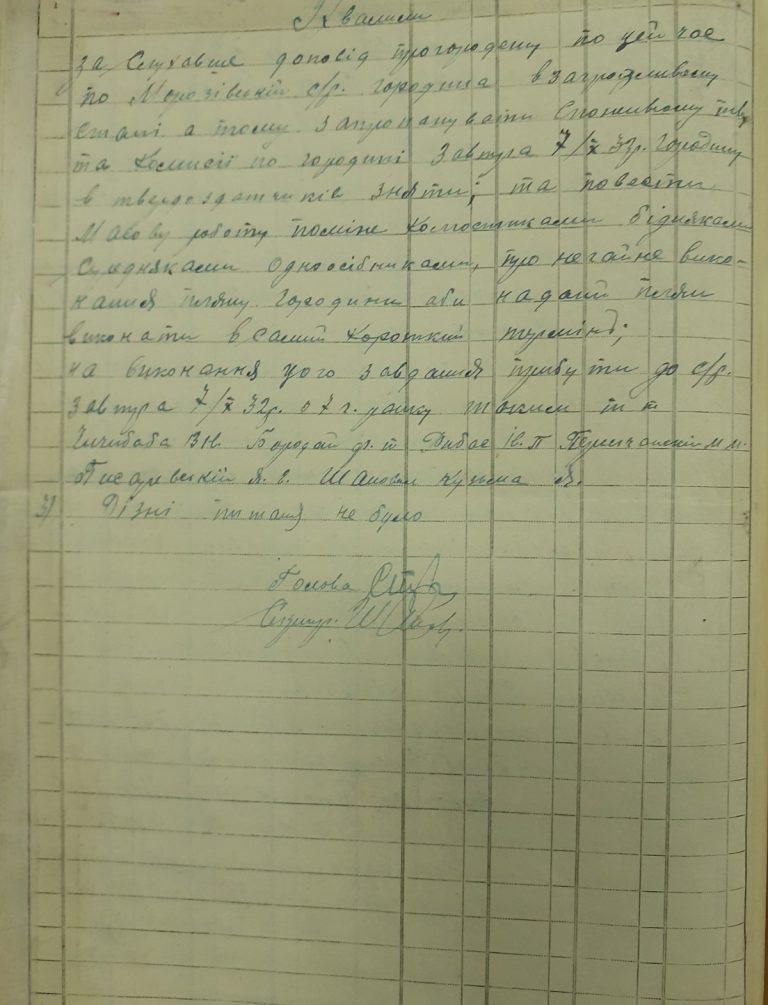 Ухвалили
за слухавше доповід про городену по цей час
по Морозівській с/р. городина в загрозливому
стані а тому запропанувати Споживчому тов.
та комисії по городині завтра 7/X 32р. городину
в твердоздатчиків зняти; та повести
масову роботу поміж колгоспниками бідняками
середняками одноосібниками, про негайне вико-
нання пляну городини аби наданий плян
виконати в самий короткий термінь;
на виконання цого завдання прибути до с/р.
завтра 7/X 32р. о 7 г. ранку таким т т
Чичибаба В.Н. Бородай Рибас Ів. П
Писаревський Я. Є. Шаповал Кузьма Я.
3) Різні питаня не було
Голова
Секрет.